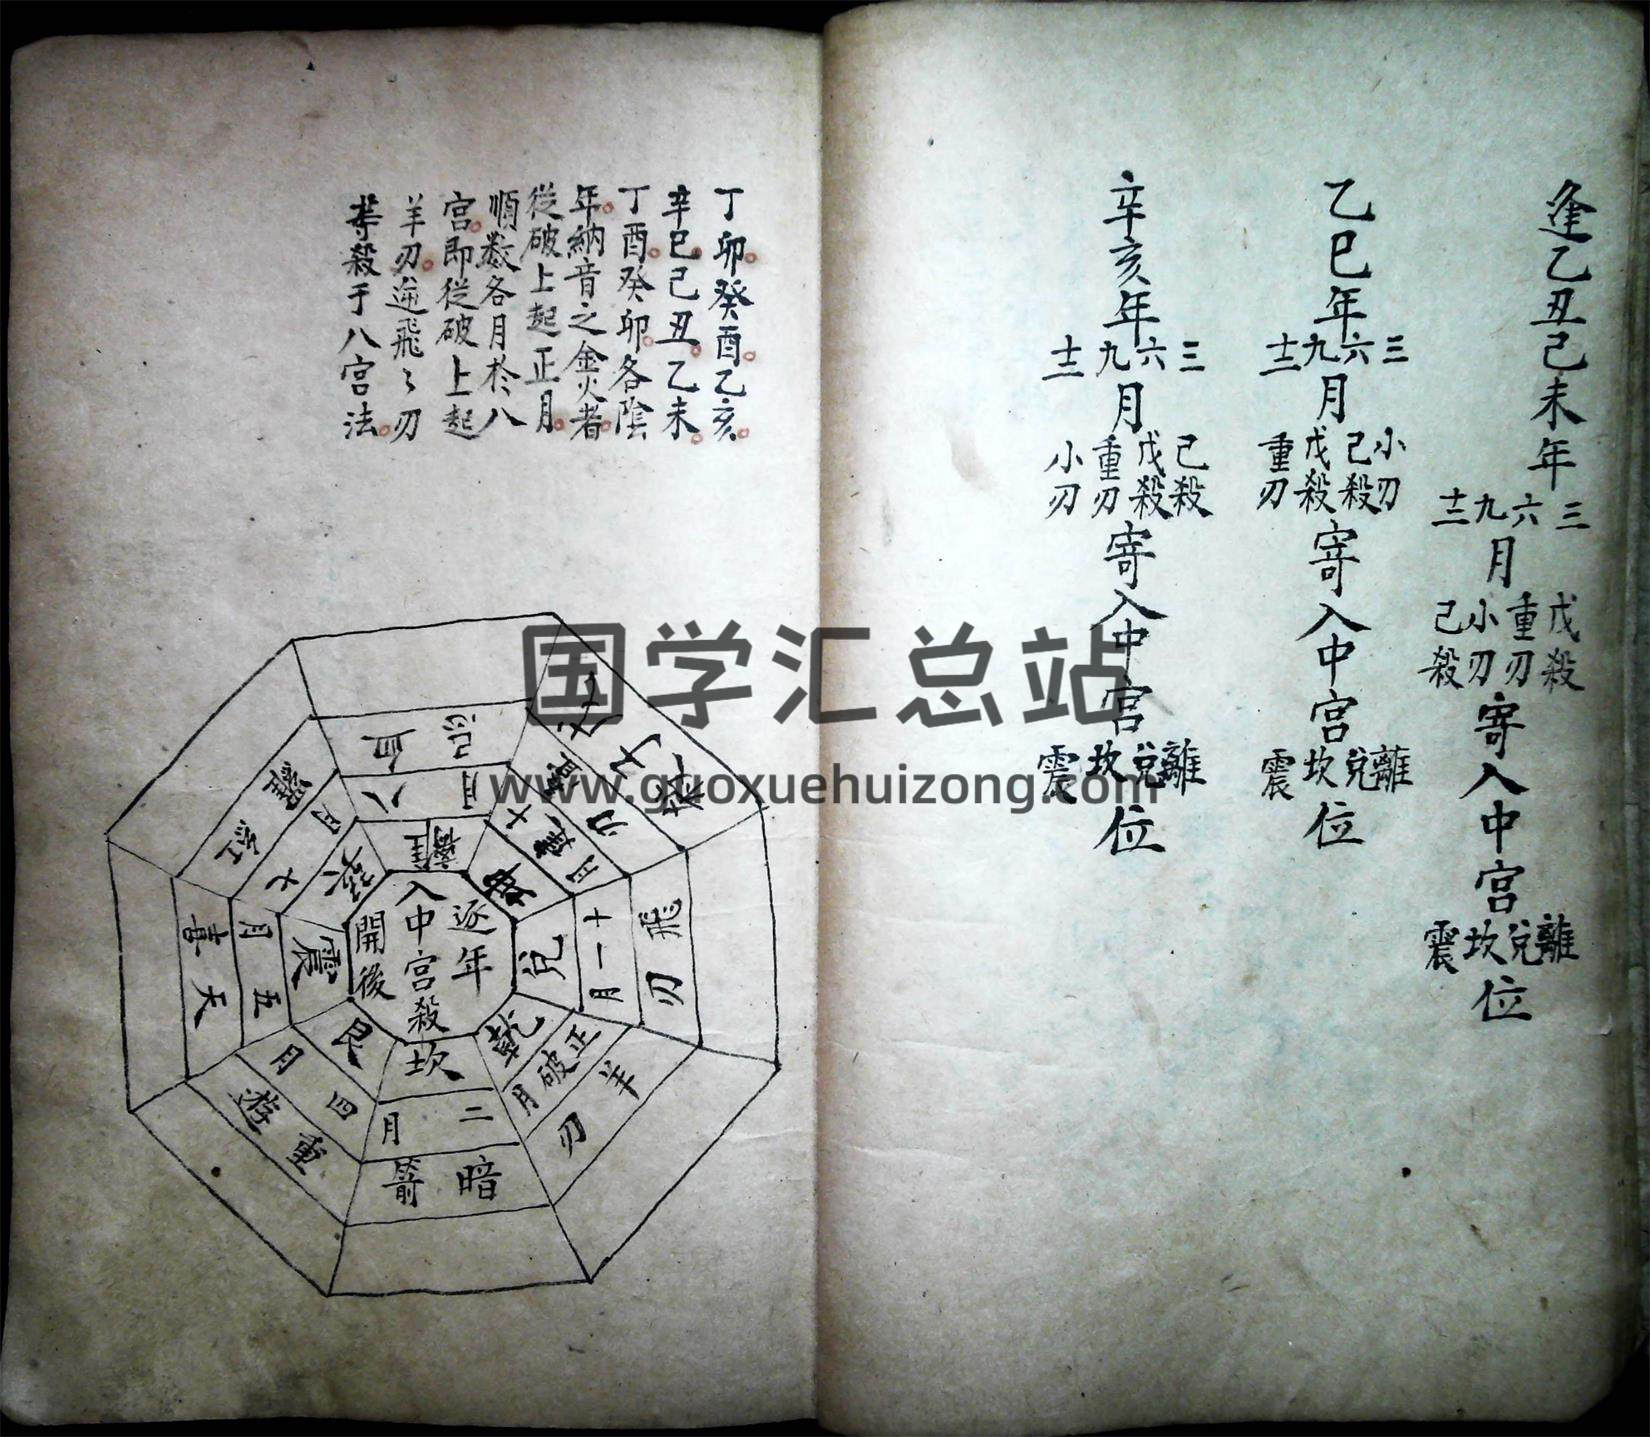 逢乙丑己未年
三 六 九 十二
月
戊殺 重刃 小刃 己殺
寄入中宮
離 兌 坎 震
位
乙巳年
三 六 九 十二
月
小刃 己殺 戊殺 重刃
寄入中宮
離 兌 坎 震
位
辛亥年
三 六 九 十二
月
己殺 戊殺 重刃 小刃
寄入中宮
離 兌 坎 震
位
丁卯癸酉乙亥
辛巳己丑乙未
丁酉癸卯各陰
年納音之金火者
從破上起正月
順數各月於八
宮即從破上起
羊刃遁飛〻刃
等殺于八宮法
逐年
入中宮殺
開後
離
八月
血忌
坤
十月
刃
兌
十一月
飛刃
乾
正月
破
羊刃
坎
二月
暗箭
艮
四月
重遊
震
五月
天喜
巽
七月
紅羅
国学汇总站
www.guoxuehuizong.com